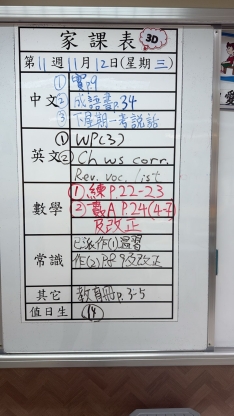 家課表 3D
第11週11月12日(星期三)
中文 ① 實p.9
② 成語書p.34
③ 下星期一考說話
英文 ① WP(3)
② Ch ws corr.
Rev. voc. list
數學 ① 練P.22-23
② 數A P.24(4-7)
及改正
常識 已派作(1)溫習
作(2)P.8,9及改正
其它 教育冊p.3-5
值日生 14
愛